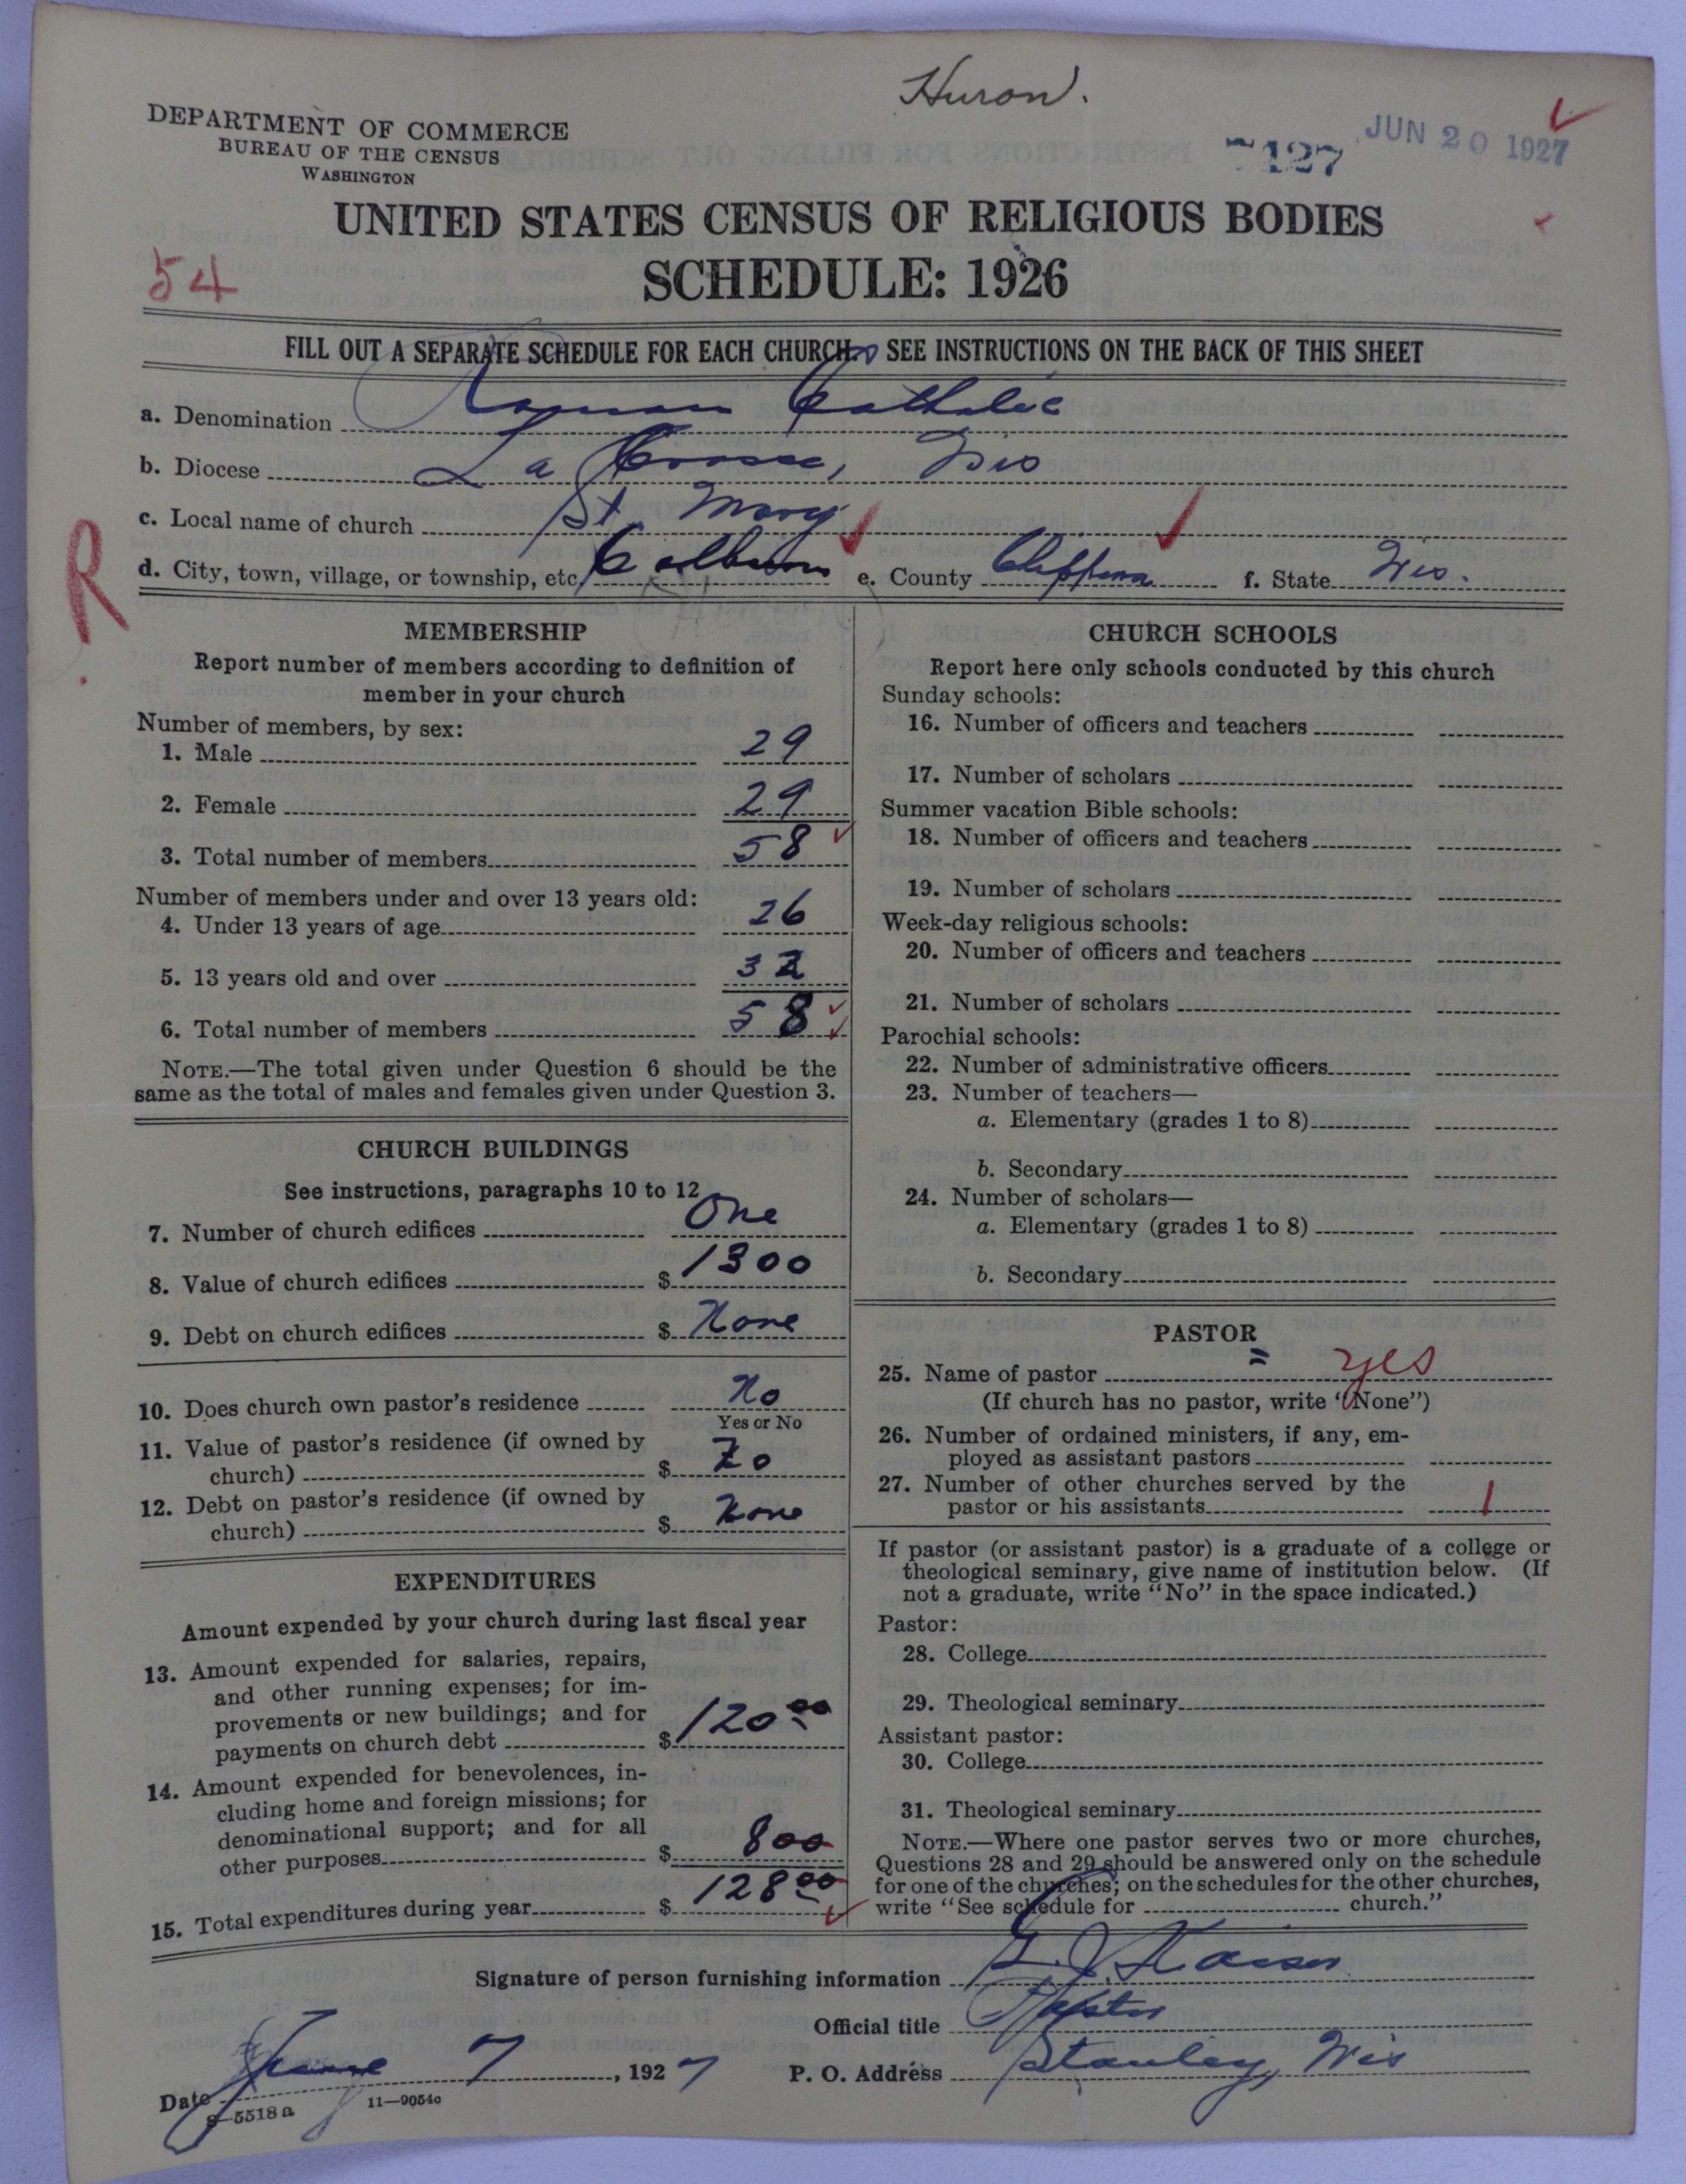 Huron.
DEPARTMENT OF COMMERCE
BUREAU OF THE CENSUS
WASHINGTON
7127
JUN 20 1927
UNITED STATES CENSUS OF RELIGIOUS BODIES
54
SCHEDULE: 1926
FILL OUT A SEPARATE SCHEDULE FOR EACH CHURCH. SEE INSTRUCTIONS ON THE BACK OF THIS SHEET
a. Denomination Roman Catholic
b. Diocese La Crosse, Wis
c. Local name of church St. Mary
R
d. City, town, village, or township, etc. Colburn e. County Chippewa f. State Wis.
MEMBERSHIP
Report number of members according to definition of
member in your church
Number of members, by sex:
1. Male 29
2. Female 29
3. Total number of members 58
Number of members under and over 13 years old:
4. Under 13 years of age 26
5. 13 years old and over 32
6. Total number of members 58
NOTE.—The total given under Question 6 should be the
same as the total of males and females given under Question 3.
CHURCH BUILDINGS
See instructions, paragraphs 10 to 12
7. Number of church edifices One
8. Value of church edifices $ 1300
9. Debt on church edifices $ None
10. Does church own pastor's residence No
Yes or No
11. Value of pastor's residence (if owned by
church) $ No
12. Debt on pastor's residence (if owned by
church) $ None
EXPENDITURES
Amount expended by your church during last fiscal year
13. Amount expended for salaries, repairs,
and other running expenses; for im-
provements or new buildings; and for
payments on church debt $ 120 00
14. Amount expended for benevolences, in-
cluding home and foreign missions; for
denominational support; and for all
other purposes $ 8 00
15. Total expenditures during year $ 128 00
CHURCH SCHOOLS
Report here only schools conducted by this church
Sunday schools:
16. Number of officers and teachers
17. Number of scholars
Summer vacation Bible schools:
18. Number of officers and teachers
19. Number of scholars
Week-day religious schools:
20. Number of officers and teachers
21. Number of scholars
Parochial schools:
22. Number of administrative officers
23. Number of teachers—
a. Elementary (grades 1 to 8)
b. Secondary
24. Number of scholars—
a. Elementary (grades 1 to 8)
b. Secondary
PASTOR
25. Name of pastor yes
(If church has no pastor, write "None")
26. Number of ordained ministers, if any, em-
ployed as assistant pastors
27. Number of other churches served by the
pastor or his assistants 1
If pastor (or assistant pastor) is a graduate of a college or
theological seminary, give name of institution below. (If
not a graduate, write "No" in the space indicated.)
Pastor:
28. College
29. Theological seminary
Assistant pastor:
30. College
31. Theological seminary
NOTE.—Where one pastor serves two or more churches,
Questions 28 and 29 should be answered only on the schedule
for one of the churches; on the schedules for the other churches,
write "See schedule for church."
Signature of person furnishing information G. J. Kaiser
Official title Pastor
Date June 7, 1927 P. O. Address Stanley, Wis
S-5518a 11—9054c